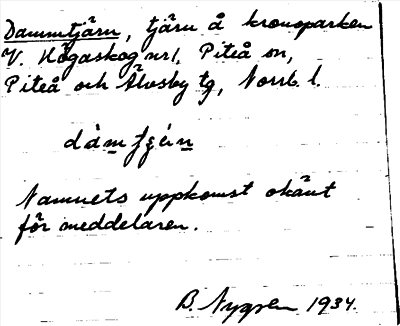 Dammtjärn, tjärn å kronoparken
V. Högaskog nr 1, Piteå sn,
Piteå och Älvsby tg, Norrb. l.
Namnets uppkomst okänt
för meddelaren.
B. Nygren 1934.